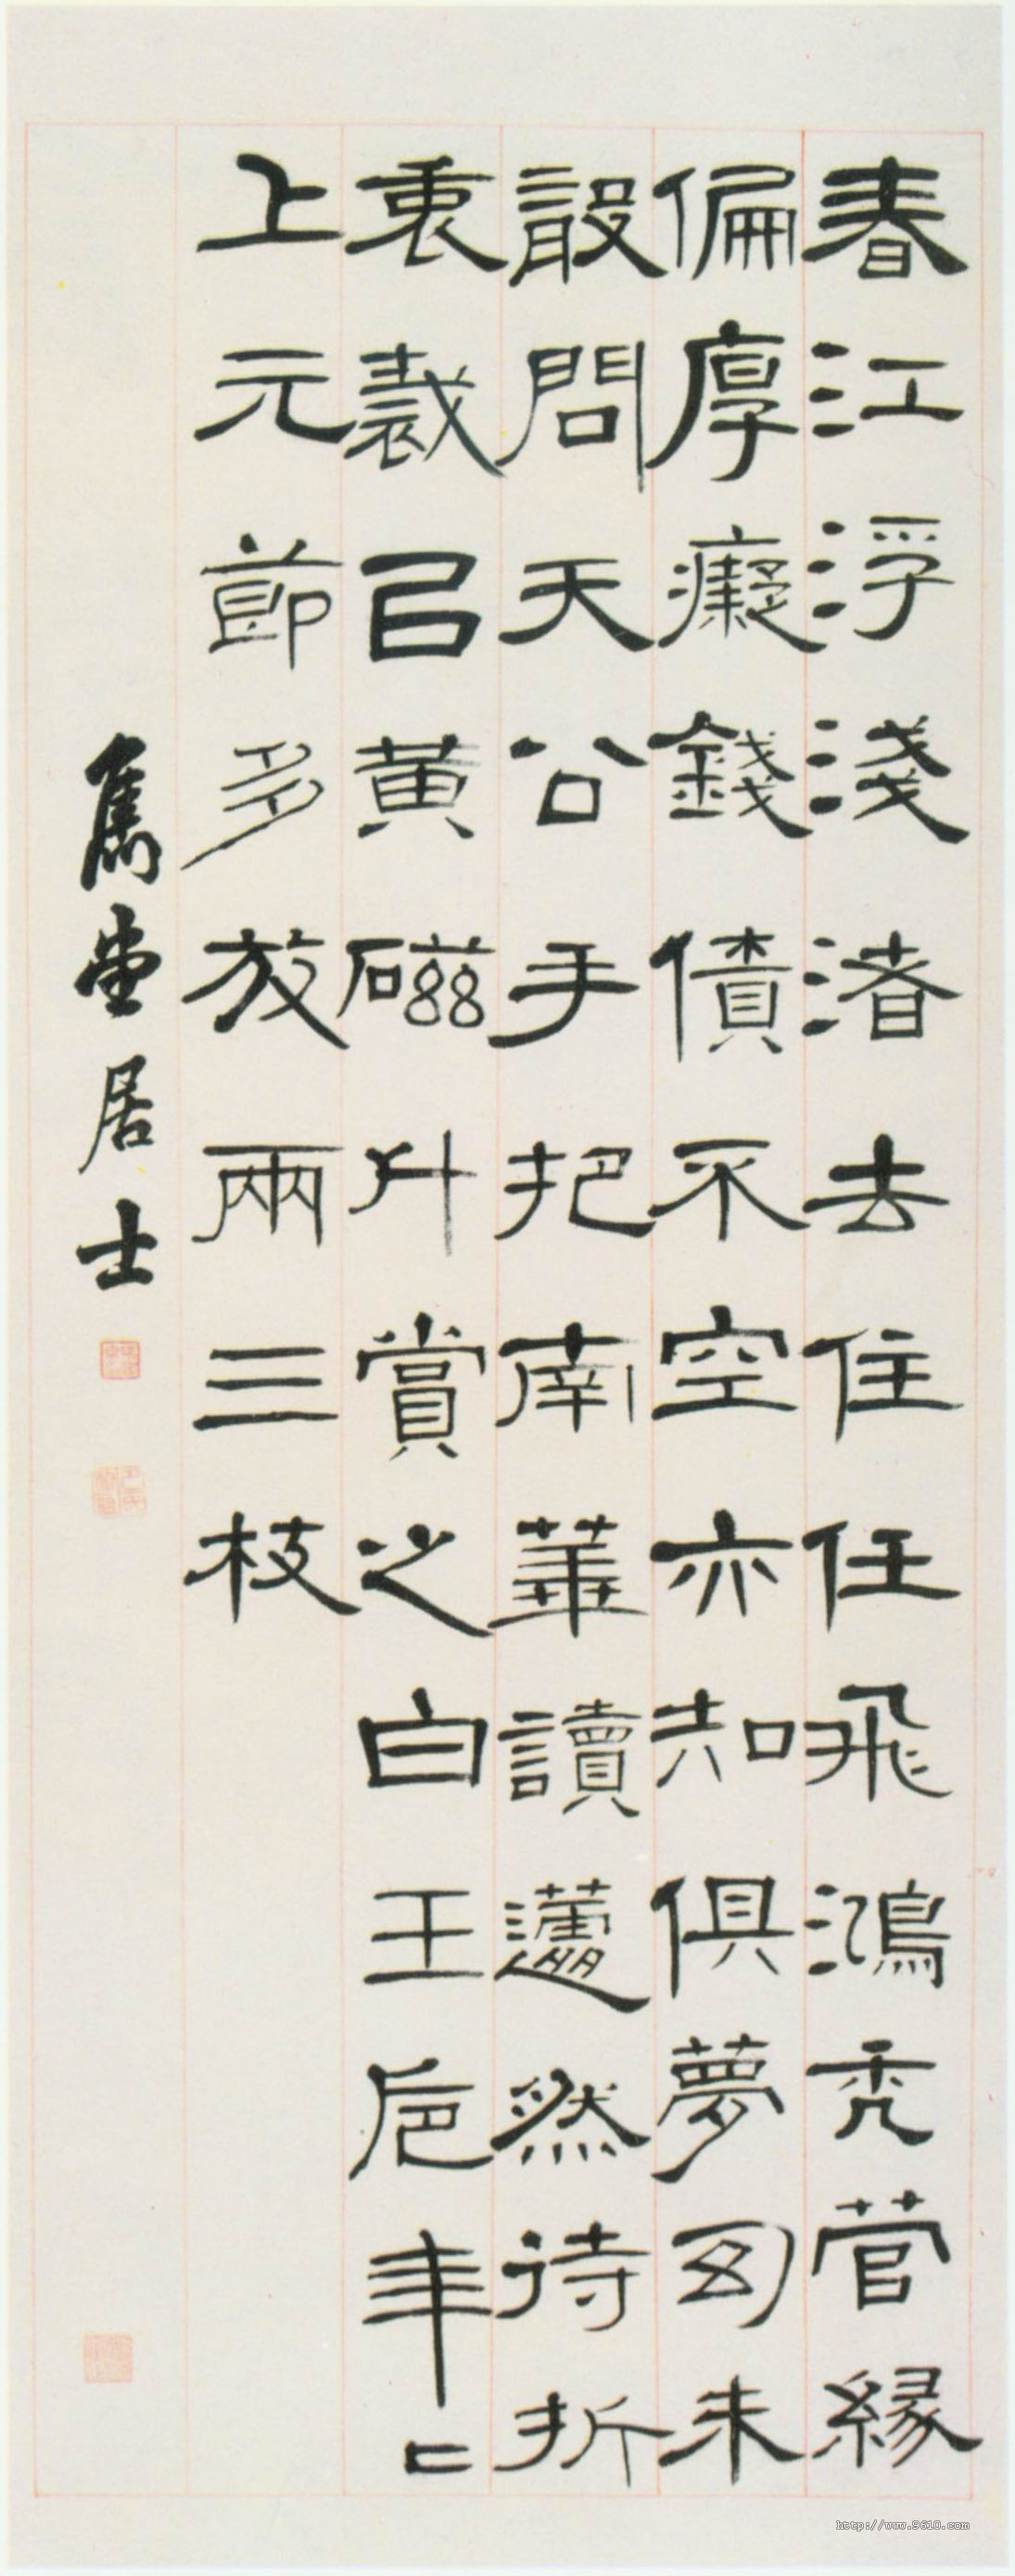 春江浮淺渚去住任飛鴻秃管緣
偏厚癡錢債不空亦知俱夢幻未
設問天公手把南華讀蘧然待折
衷裁㠯黃磁斗賞之白玉卮年〻
上元節多放兩三枝
雋堂居士
http://www.9610.com